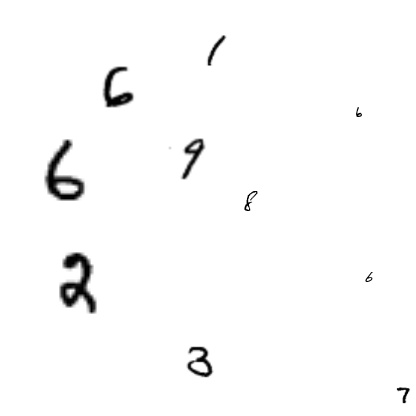 1
6
6
6
9
8
2
6
3
7